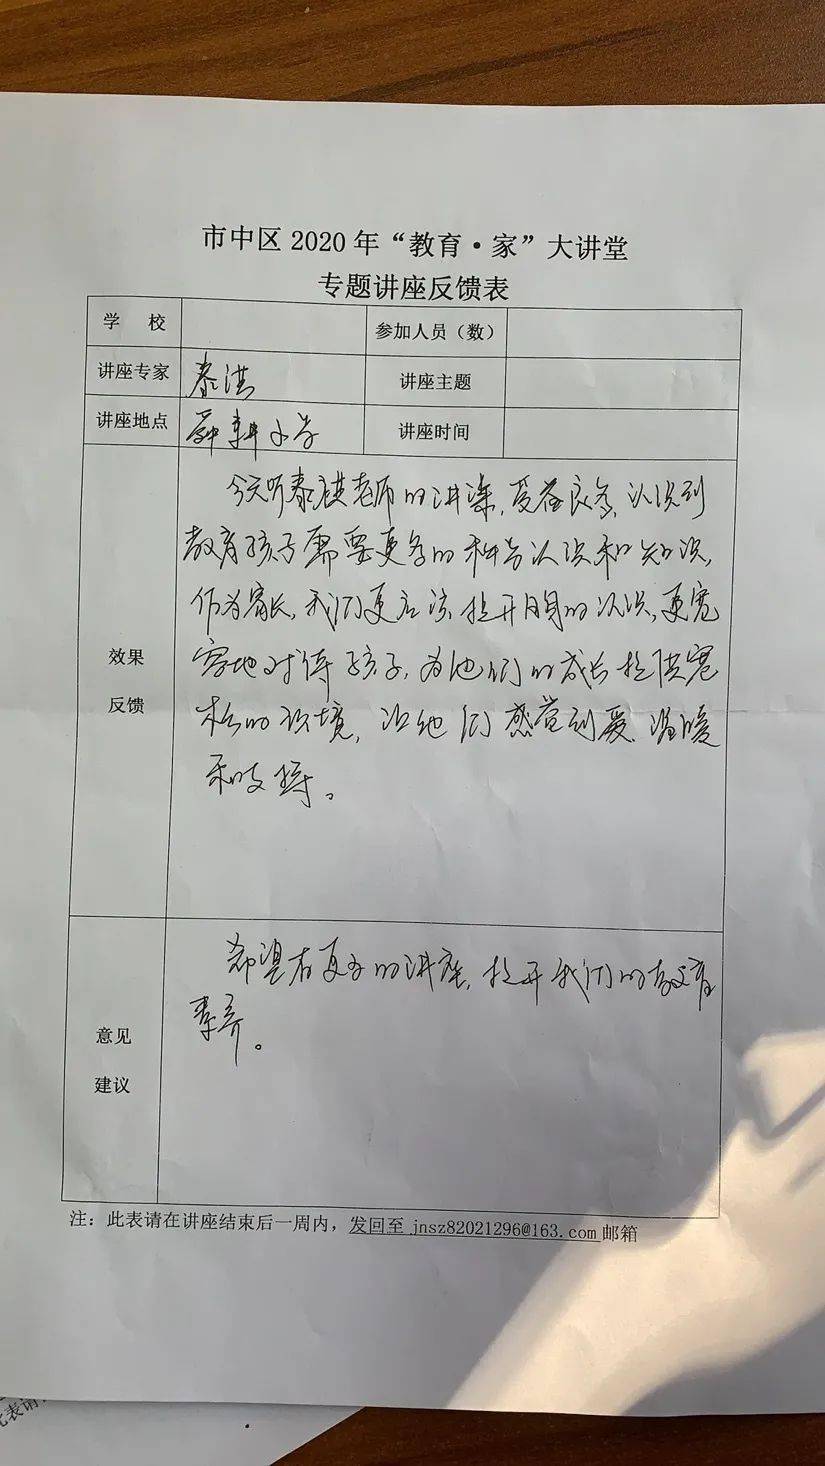 市中区 2020 年“教育·家”大讲堂
专题讲座反馈表
学 校 参加人员（数）
讲座专家 秦洪 讲座主题
讲座地点 舜耕小学 讲座时间
今天听秦洪老师的讲课，受益良多，认识到
教育孩子需要更多的科学认识和知识，
作为家长，我们更应该提升自身的认识，更宽
容地对待孩子，为他们的成长提供宽
松的环境，让他们感觉到爱、温暖
和支持。
效果
反馈
希望有更多的讲座，提升我们的教育
素养。
意见
建议
注：此表请在讲座结束后一周内，发回至 jnsz82021296@163.com 邮箱
此表请